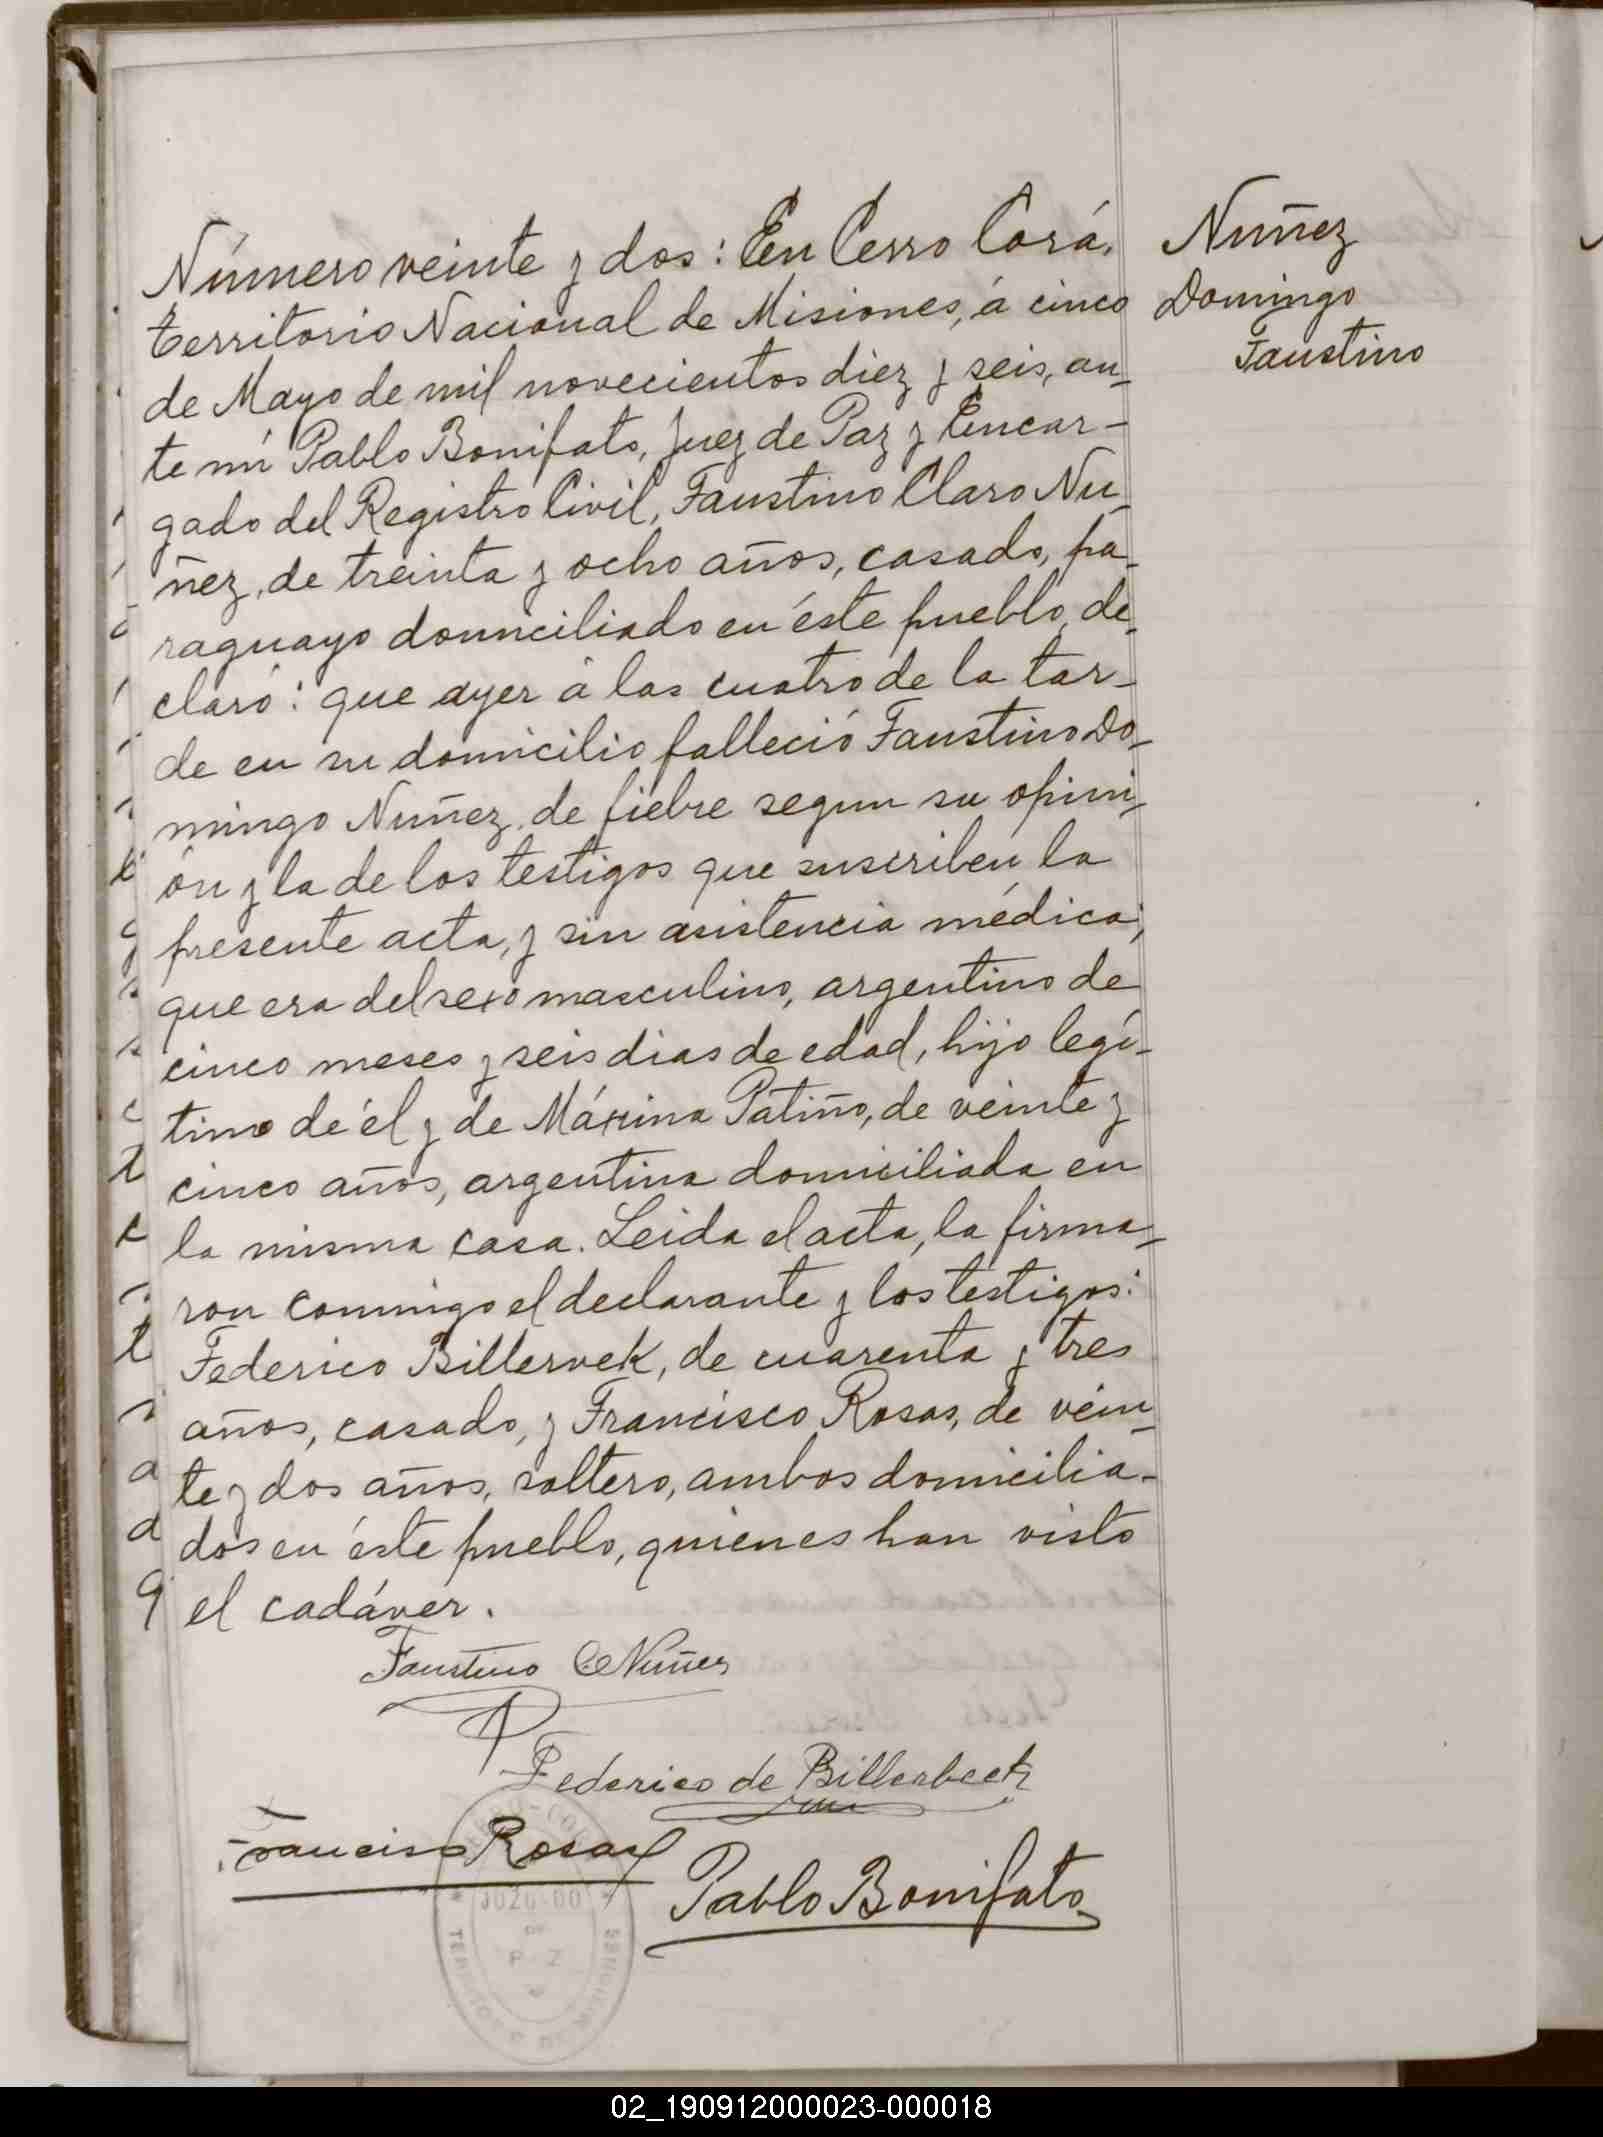 Número veinte y dos: En Cerro Corá,
territorio Nacional de Misiones, á cinco
de Mayo de mil novecientos diez y seis, an-
te mí Pablo Bonifato, Juez de Paz y Encar-
gado del Registro Civil, Faustino Claro Nu-
ñez, de treinta y ocho años, casado, pa-
raguayo domiciliado en éste pueblo, de-
claró: que ayer á las cuatro de la tar-
de en su domicilio falleció Faustino Do-
mingo Nuñez, de fiebre segun su opini-
ón y la de los testigos que suscriben la
presente acta, y sin asistencia médica;
que era del sexo masculino, argentino de
cinco meses y seis dias de edad, hijo legí-
timo de él y de Máxima Patiño, de veinte y
cinco años, argentina domiciliada en
la misma casa. Leida el acta, la firma-
ron conmigo el declarante y los testigos:
Federico Billervek, de cuarenta y tres
años, casado, y Francisco Rosas, de vein-
te y dos años, soltero, ambos domicilia-
dos en éste pueblo, quienes han visto
el cadáver.
Nuñez
Domingo
Faustino
Faustino C Nuñez
Federico de Billerbeck
Francisco Rosas
Pablo Bonifato
02_190912000023-000018